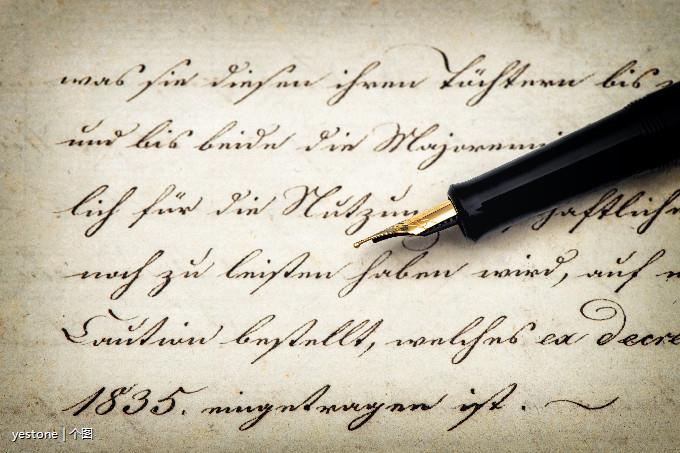 was sie diesen ihren Töchtern bis
und bis beide die Majorenni
lich für die Nutzun haftlich
noch zu leisten haben wird, auf
Caution bestellt, welches ex decre
1835. eingetragen ist.
yestone | 个图